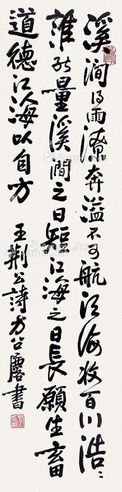 溪澗得雨潦奔溢不可航江海收百川浩〻
誰能量溪澗之日短江海之日長願生畜
道德江海以自方
王荆公詩方召麐書